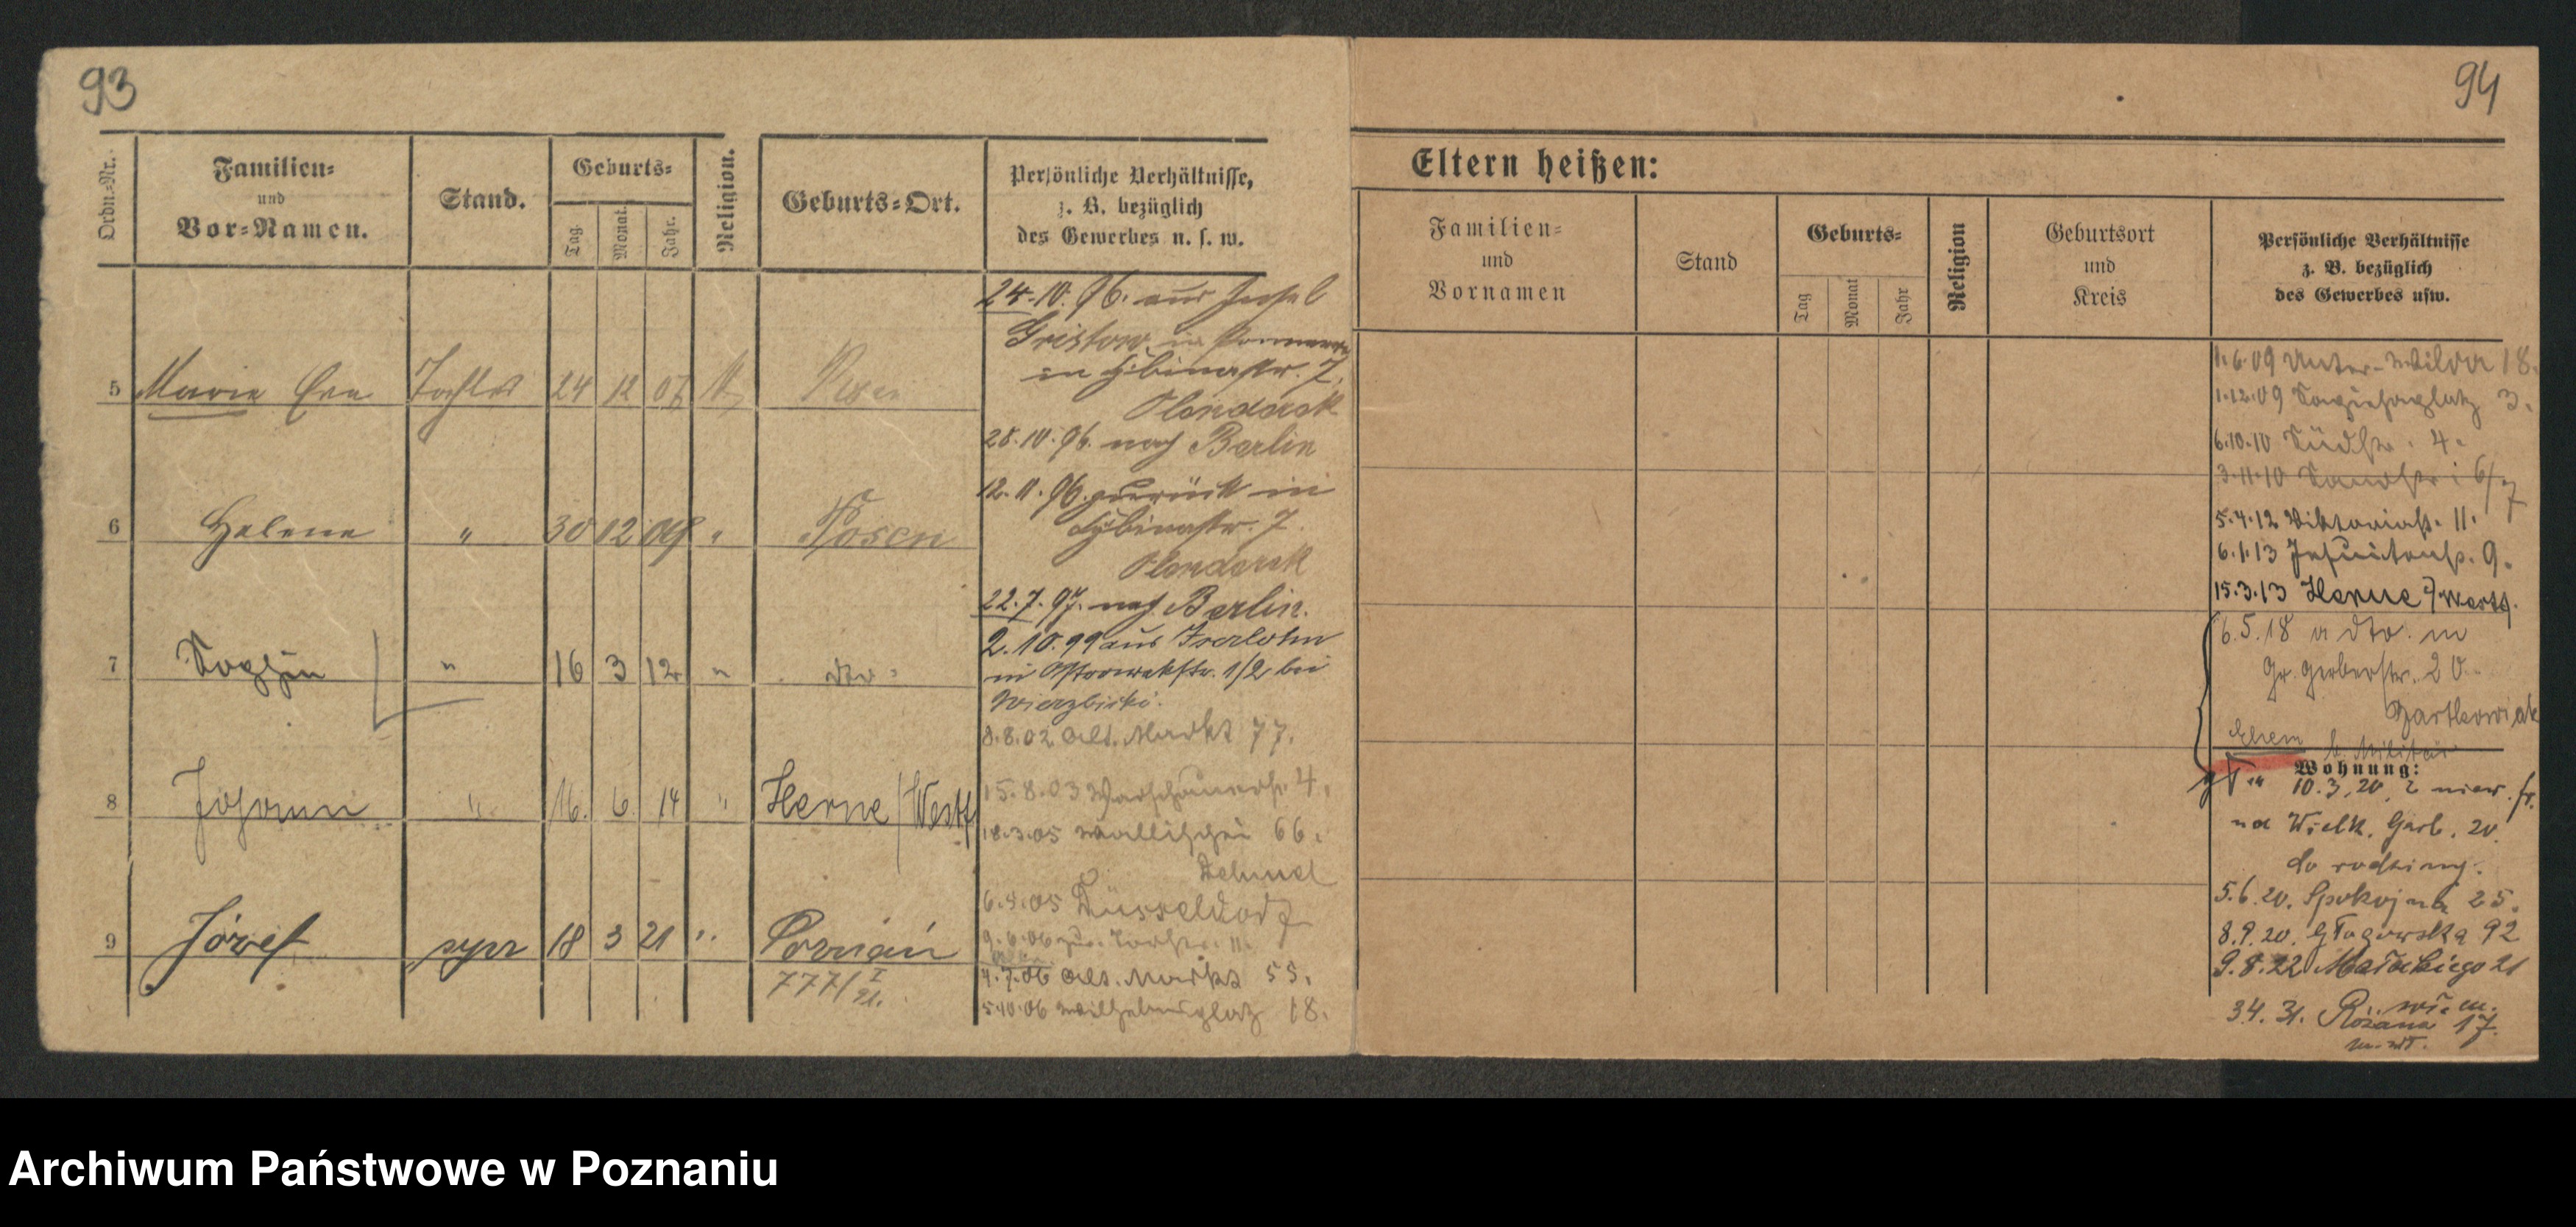 93
Ordn.-Nr.
Familien-
und
Vor-Namen.
Stand.
Geburts-
Tag.
Monat.
Jahr.
Religion.
Geburts-Ort.
Persönliche Verhältnisse,
z. B. bezüglich
des Gewerbes u. s. w.
5 Marie Tochter 24 12 Posen
6 Helene " 30 12 " Posen
7 Sophie " 16 3 12 " dto.
8 Johann " 16. 6 14 " Herne/Westf
9 Józef syn 18 3 21 " Poznań
777/I 21.
24.10.96. aus Insel
Gristow in Pommern
in 7.
28.10.96. nach Berlin
12.11.96. zurück in
7.
22.7.97. nach Berlin.
2.10.99 aus Iserlohn
in 1/2, bei
Wierzbicki.
8.8.02 Alt. Markt 77.
15.8.03 Warschauerstr. 4.
18.3.05 Wallischei 66.
6.4.05 Düsseldorf
4.7.06 Alt. Markt 55.
5.10.06 Wilhelmsplatz 18.
94
Eltern heißen:
Familien-
und
Vornamen
Stand
Geburts-
Tag
Monat
Jahr
Religion
Geburtsort
und
Kreis
Persönliche Verhältnisse
z. B. bezüglich
des Gewerbes usw.
1.6.09 Unter-Wilda 18.
1.12.09 Sapiehaplatz 3.
6.10.10 Südstr. 4.
3.11.10 6/7
5.4.12 Viktoriastr. 11.
6.1.13 Jesuitenstr. 9.
15.3.13 Herne i/Westf.
6.5.18 a dto. in
Gr. Gerberstr. 20
Bartkowiak
Ehem b. Militär
Wohnung:
10.3.20.
na Wielk. Garb. 20.
do rodziny.
5.6.20. Spokojna 25.
8.9.20. Głogowska 92
9.8.22 Małeckiego 21
3.4.31. Różana 17.
Archiwum Państwowe w Poznaniu